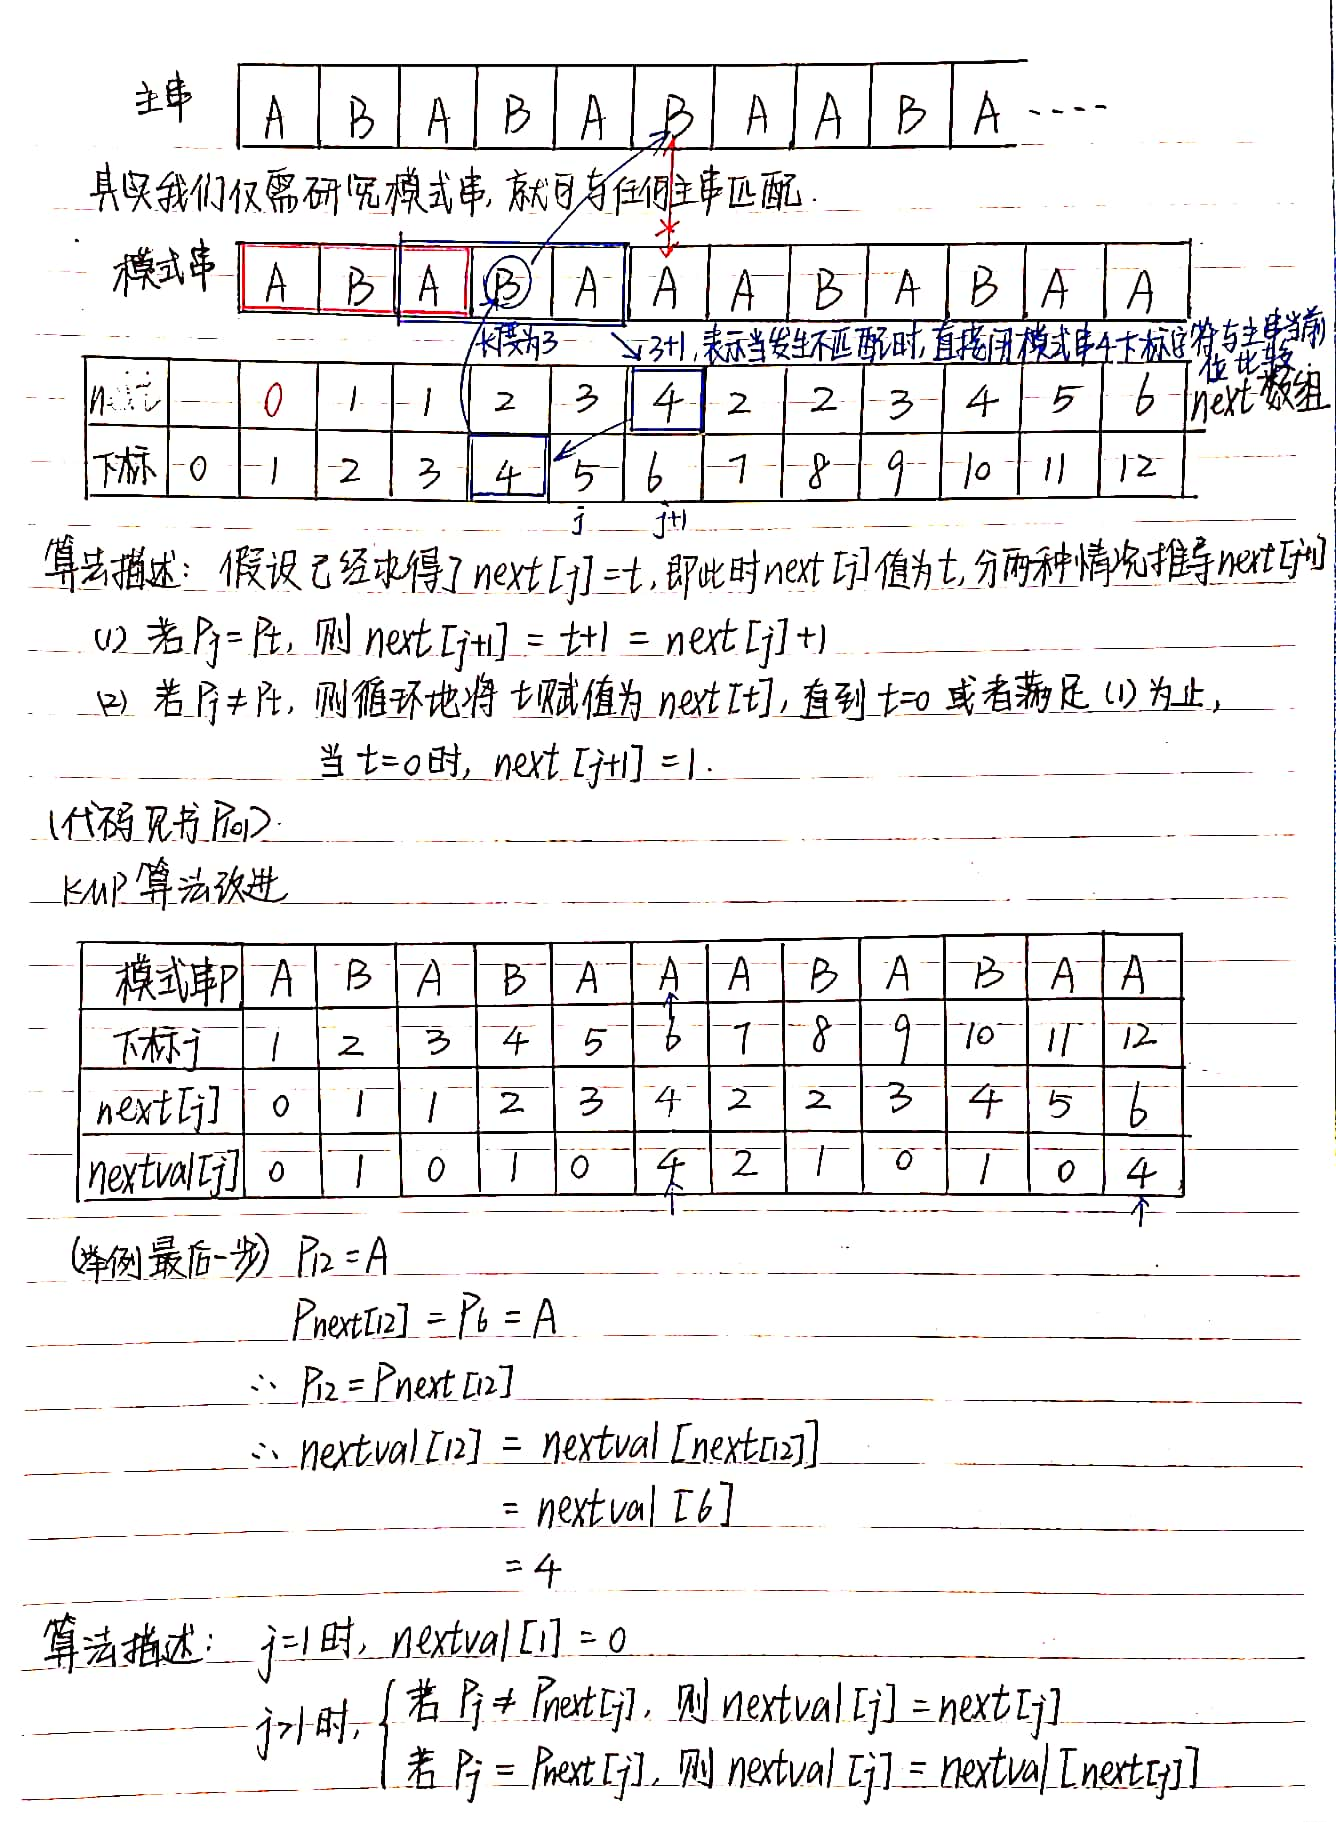 主串 A B A B A B A A B A ----
其实我们仅需研究模式串,就可与任何主串匹配.
模式串 A B A B A A A B A B A A
长度为3 3+1,表示当发生不匹配时,直接用模式串4下标字符与主串当前位比较
0 1 1 2 3 4 2 2 3 4 5 6 next数组
下标 0 1 2 3 4 5 6 7 8 9 10 11 12
j j+1
算法描述: 假设已经求得了next[j]=t,即此时next[j]值为t,分两种情况推导next[j+1]
(1) 若Pj=Pt, 则 next[j+1] = t+1 = next[j]+1
(2) 若Pj≠Pt, 则循环地将 t赋值为 next[t],直到t=0 或者满足 (1) 为止,
当 t=0时, next [j+1] =1.
(代码见书P101).
KMP算法改进
模式串P A B A B A A A B A B A A
下标j 1 2 3 4 5 6 7 8 9 10 11 12
next[j] 0 1 1 2 3 4 2 2 3 4 5 6
nextval[j] 0 1 0 1 0 4 2 1 0 1 0 4
(举例最后一步) P12=A
Pnext[12] = P6 = A
∴ P12=Pnext[12]
∴ nextval[12] = nextval[next[12]]
= nextval [6]
= 4
算法描述: j=1时, nextval[1]=0
j>1时, { 若 Pj ≠ Pnext[j], 则 nextval[j]=next[j]
若 Pj = Pnext[j], 则 nextval[j] = nextval[next[j]]